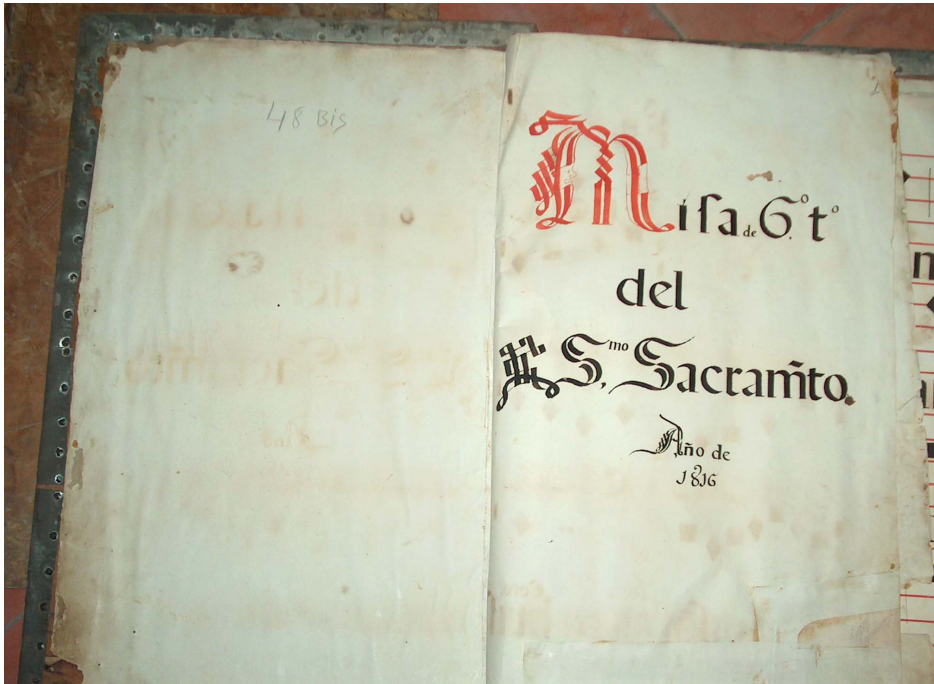 48 Bis
Misa de 6.º tº
del
S.mo Sacram̃to.
Año de
1816